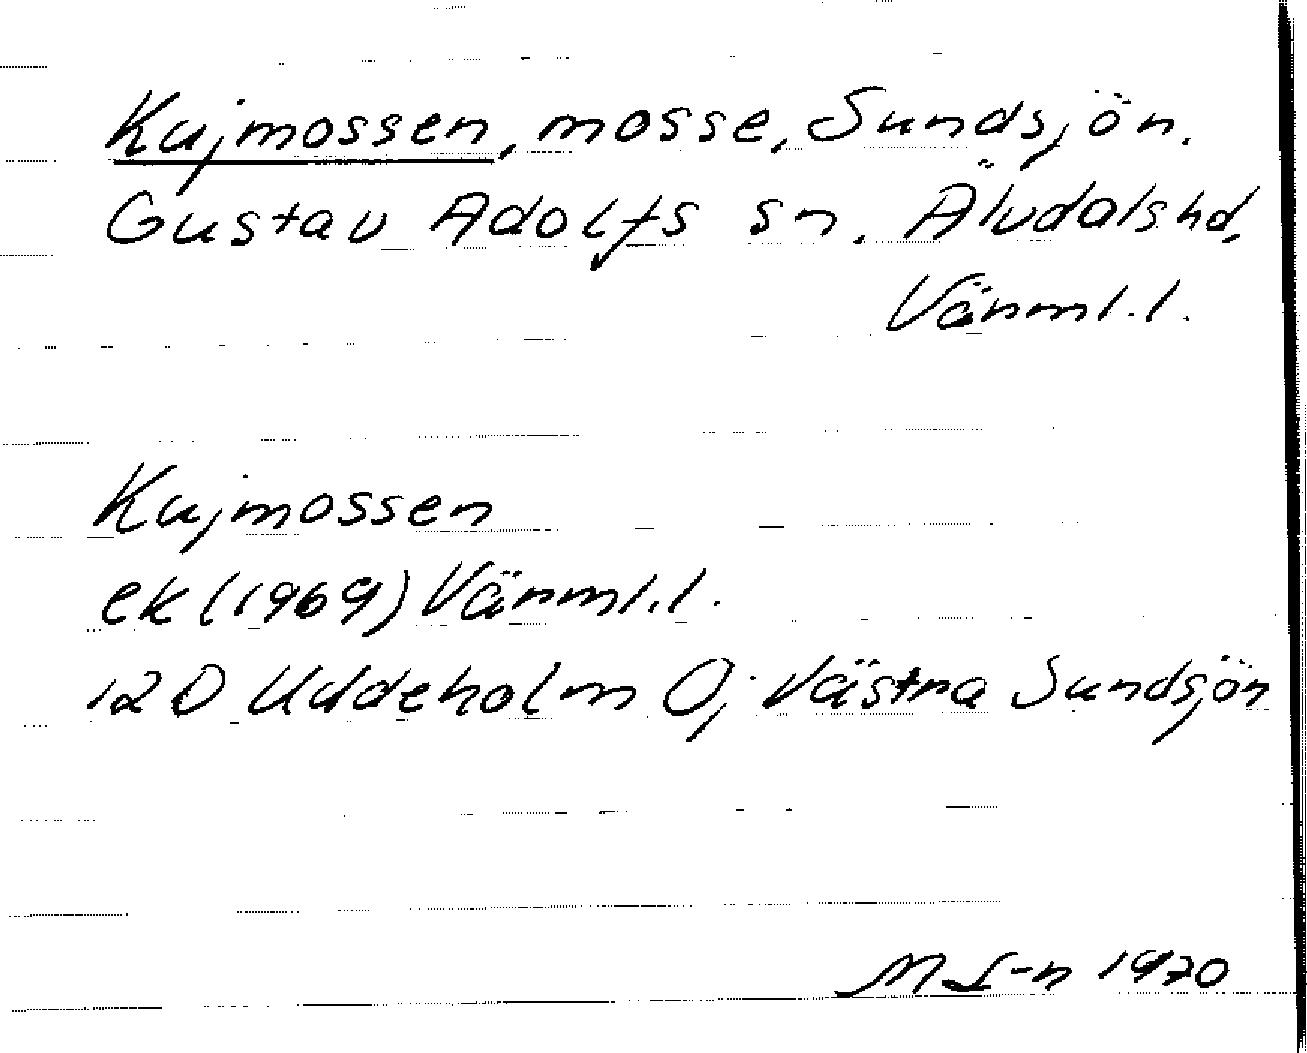 Kujmossen, mosse, Sundsjön.
Gustav Adolfs sn. Älvdals hd,
Värml. l.
Kujmossen
ek (1969) Värml. l.
12 D Uddeholm Oj Västra Sundsjön
M L-n 1970